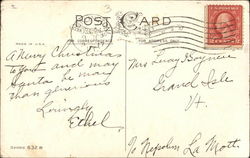 3
POST CARD
MADE IN U.S.A.
A Merry Christmas
to you and may
Santa be more
than generous
Lovingly
Ethel
Mrs Lucy
Grand Isle
Vt.
c/o Napoleon La Mott
SERIES 632 B